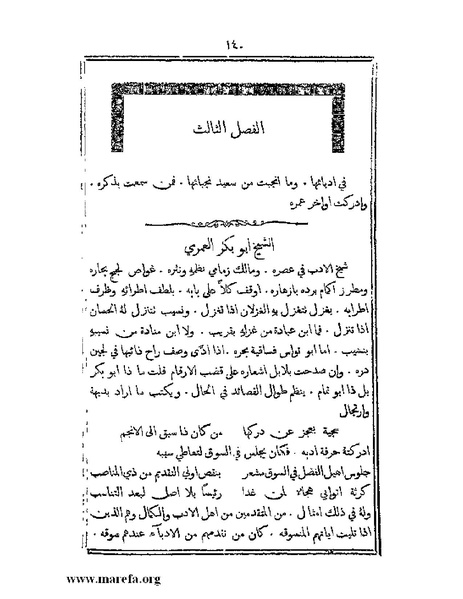 ١٤٠
الفصل الثالث
في ادبائها . وما انجبت من سعيد نجبائها . فمن سمعت بذكره .
وادركت اواخر عمره
الشيخ ابو بكر العمري
شيخ الادب في عصره . ومالك زمامي نظمه ونثره . غواص لجج بحاره
ومطرز اكمام برده بازهاره . اوقف كلاً على بابه . بلطف اطرائه وظرف
اطرابه . بغزل تتغزل به الغزلان اذا تغزل . ونسيب تتنازل له الحسان
اذا تنزل . فما ابن عبادة من غزله بقريب . ولا ابن منادة من نسيبه
بنسيب . اما ابو نواس فساقية بحره . اذا ادنى وصف راح فائبها في لجين
دره . وان صدحت بلابل اشعاره على قضب الارقام قلت ما ذا ابو بكر
بل ذا ابو تمام . ينظم طوال القصائد في الحال . ويكتب ما اراد بديهة
وارتجال
سجية يعجز عن دركها من كان ذا سبق الى الانجم
ادركته حرفة ادبه . فكان يجلس في السوق لتعاطي سببه
جلوس اهيل الفضل في السوق مشعر بنقص اولي التقديم من ذي المناصب
كرثة اثوابي هجاء لمن غدا رئيساً بلا اصل لبعد التناسب
وله في ذلك امثال . من المتقدمين من اهل الادب والكمال وهم الذين
اذا تليت اياتهم المنسوقه . كان من تقدمهم من الادباء عندهم سوقه .
www.marefa.org